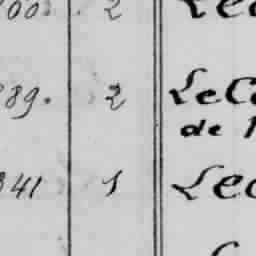 00. 2 Lec
89. 2 Le C
de
341 1 Lec